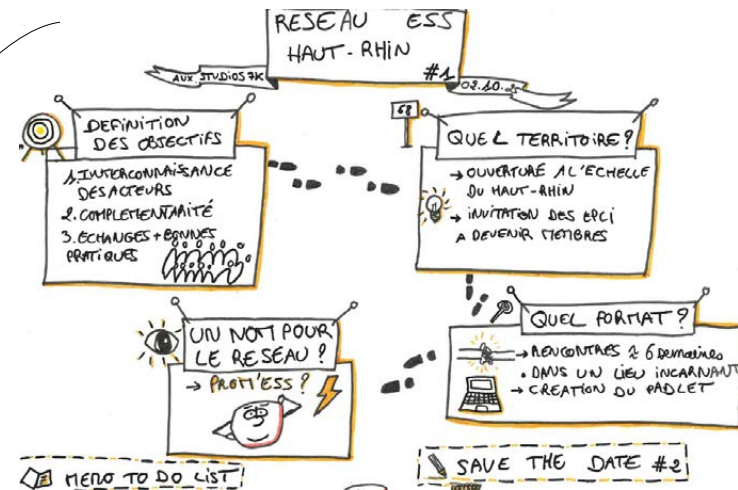 RESEAU ESS
HAUT-RHIN
#1
AUX STUDIOS 7K
02.10.2
DEFINITION
DES OBJECTIFS
1. INTERCONNAISSANCE
DES ACTEURS
2. COMPLEMENTARITÉ
3. ECHANGES + BONNES
PRATIQUES
68
QUEL TERRITOIRE?
→ OUVERTURE A L'ECHELLE
DU HAUT-RHIN
→ INVITATION DES EPCI
A DEVENIR MEMBRES
QUEL FORMAT?
→ RENCONTRES ≈ 6 semaines
• DANS UN LIEU INCARNANT
→ CREATION DU PADLET
UN NOM POUR
LE RESEAU?
→ PROM'ESS?
MEMO TO DO LIST
SAVE THE DATE #2